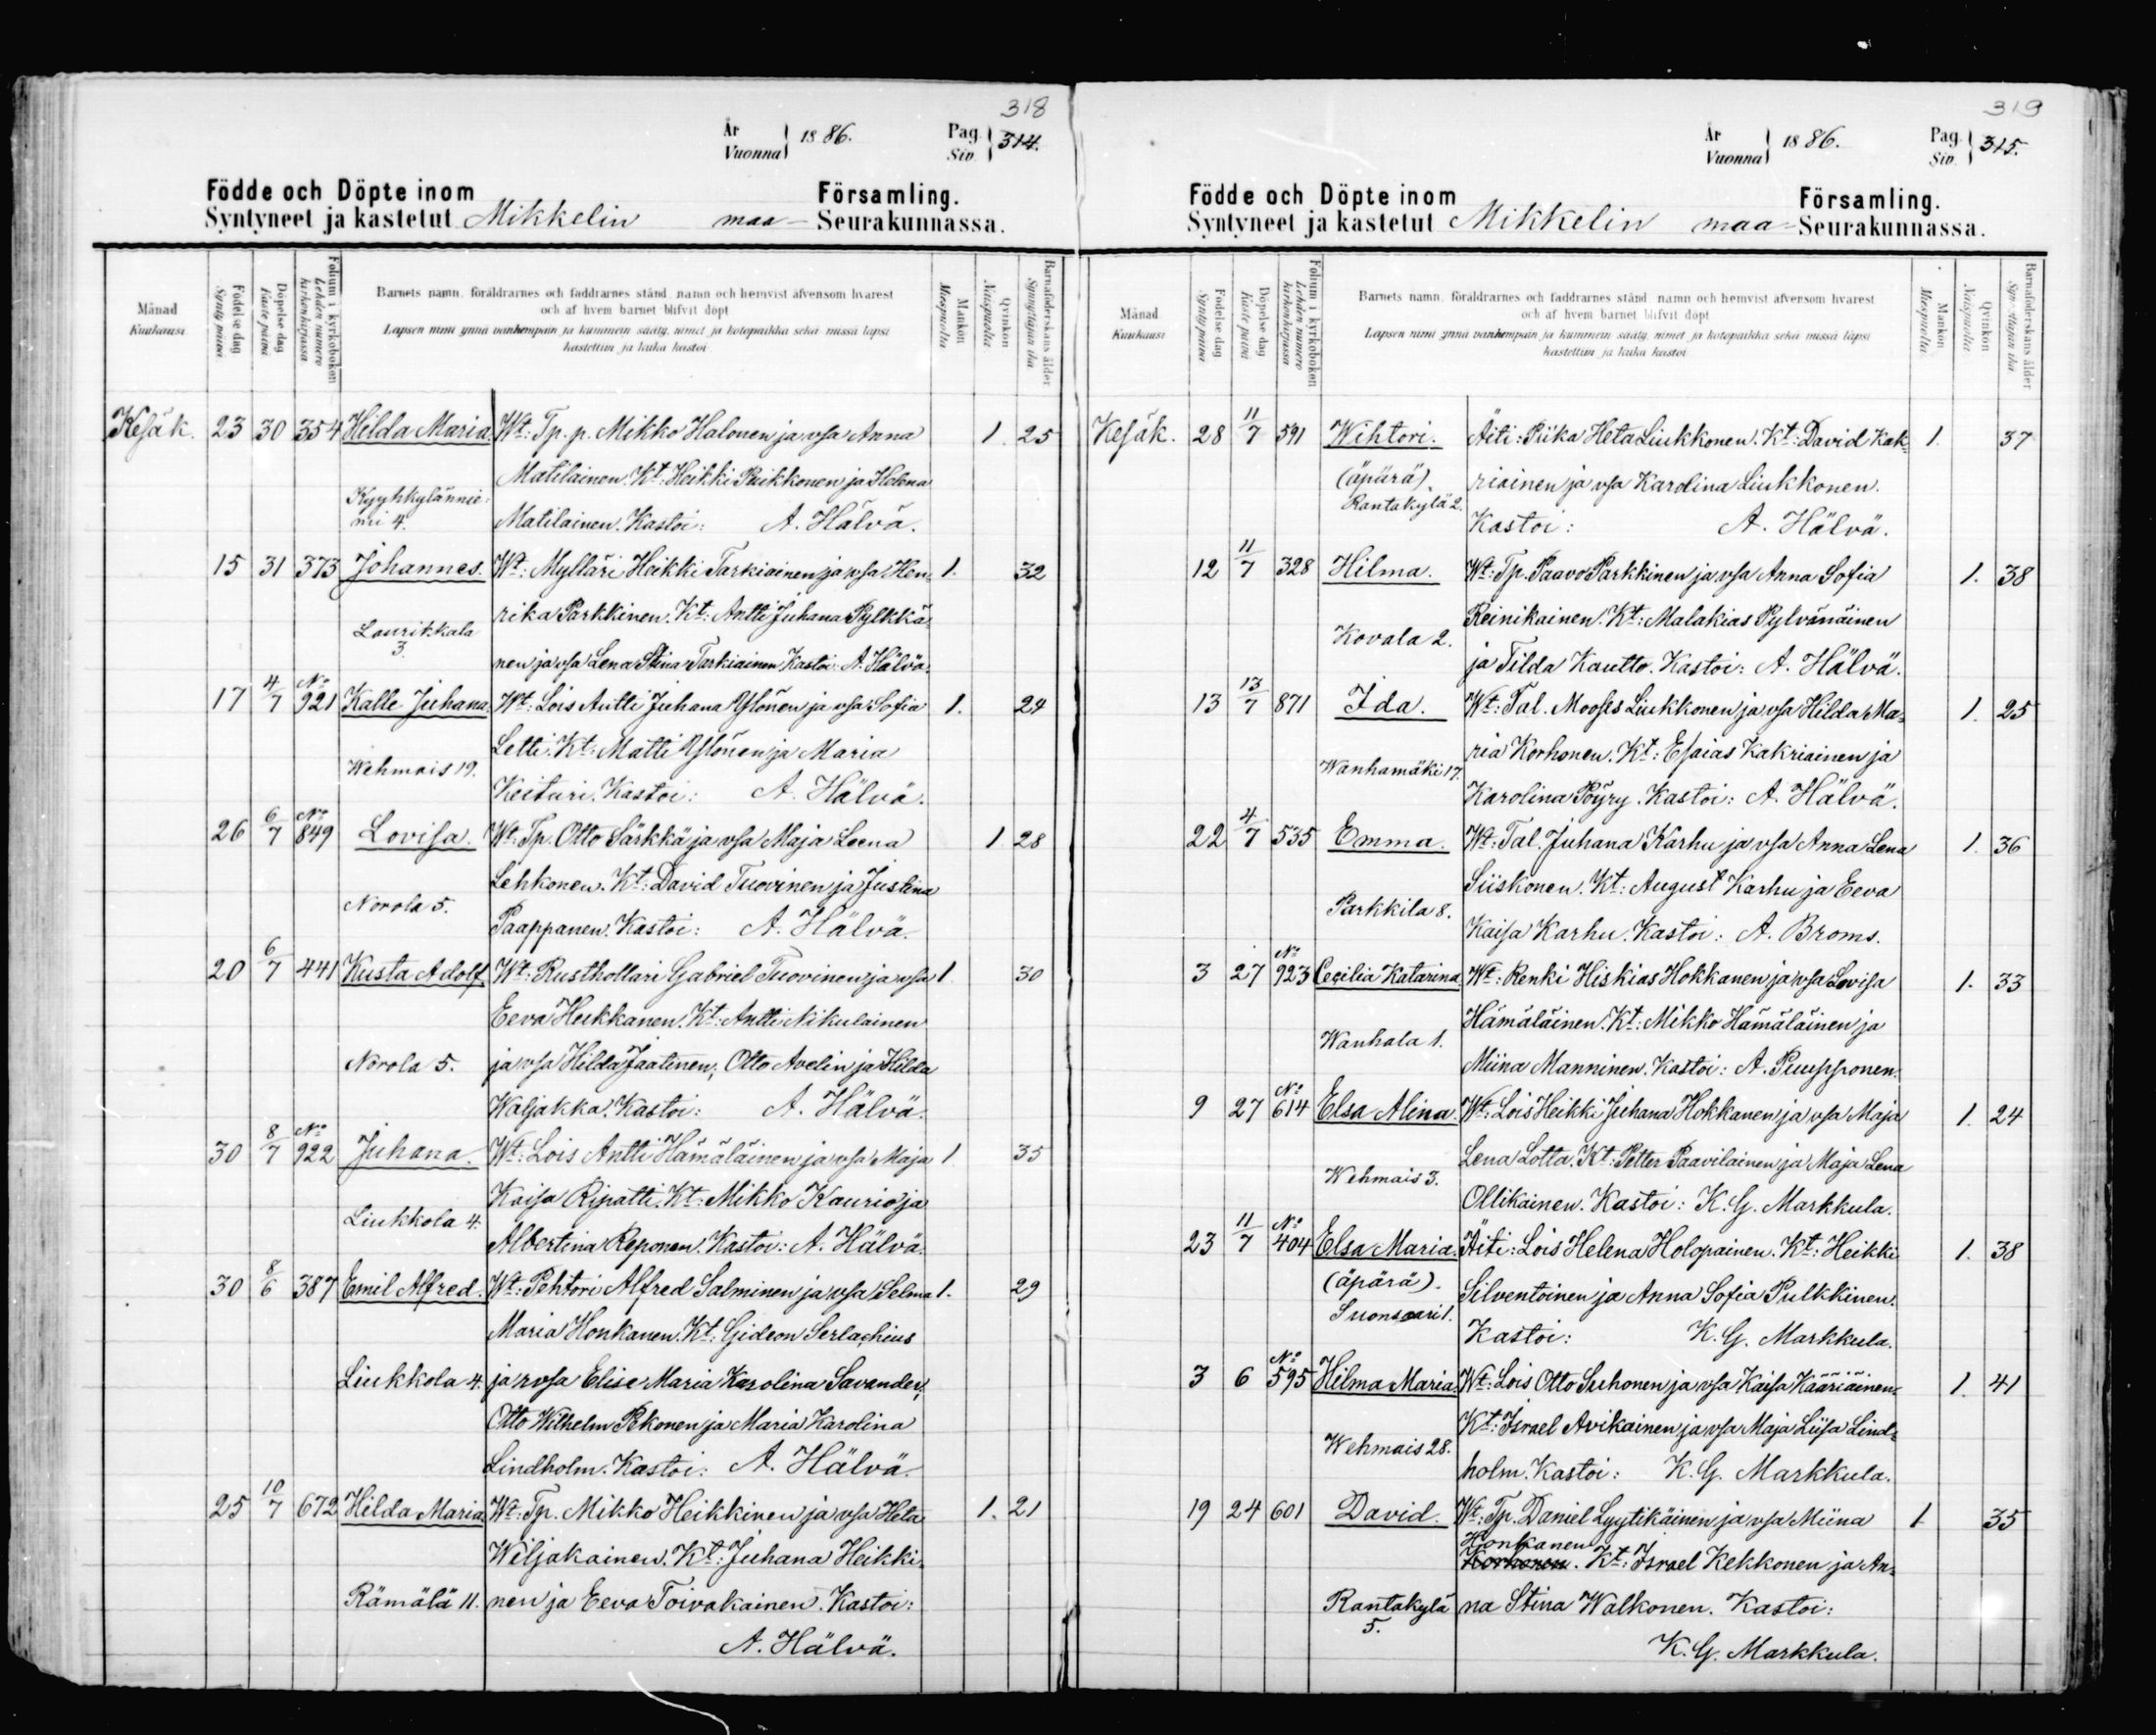 318
År Vuonna 1886. Pag. Siv. 314.
Födde och Döpte inom Församling.
Syntyneet ja kastetut Mikkelin maa- Seurakunnassa.
Månad Kuukausi
Födelse dag Synty päivä
Döpelse dag Kaste päivä
Folium i kyrkoboken Lehden numero kirkonkirjassa
Barnets namn, föräldrarnes och faddrarnes stånd, namn och hemvist äfvensom hvarest
och af hvem barnet blifvit döpt
Lapsen nimi ynnä vanhempain ja kummein sääty, nimet ja kotopaikka sekä missä lapsi
kastettiin ja kuka kastoi
Mankön Miespuolia
Qvinkön Naispuolia
Barnaföderskans ålder Synnyttäjän ikä
Kesäk. 23 30 354 Hilda Maria. Wt: Tp. p. Mikko Halonen ja vsa Anna 1 25
Matilainen. Kt: Heikki Puikkonen ja Helena
Kyyhkylännie-
mi 4. Matilainen. Kastoi: A. Hälvä.
15 31 373 Johannes. Wt: Mylläri Heikki Tarkiainen ja vsa Hen- 1. 32
rika Parkkinen. Kt: Antti Juhana Pylkkä-
Laurikkala
3. nen ja vsa Lena Stina Tarkiainen Kastoi: A. Hälvä.
17 4/7 No 921 Kalle Juhana. Wt: Lois Antti Juhana Ylönen ja vsa Sofia 1. 24
Letti. Kt: Matti Ylönen ja Maria
Wehmais 19.
Keituri. Kastoi: A. Hälvä.
26 6/7 No 849 Lovisa. Wt: Tp. Otto Särkkä ja vsa Maja Leena 1 28
Lehkonen. Kt: David Tuovinen ja Justina
Norola 5.
Paappanen. Kastoi: A. Hälvä.
20 6/7 441 Kusta Adolf. Wt: Rusthollari Gabriel Tuovinen ja vsa 1 30
Eeva Heikkanen. Kt: Antti Nikulainen
Norola 5. ja vsa Hilda Jaatinen, Otto Avelin ja Hilda
Waljakka. Kastoi: A. Hälvä.
30 8/7 No 922 Juhana. Wt: Lois Antti Hämäläinen ja vsa Maja 1 35
Kaisa Ripatti. Kt: Mikko Kaurio ja
Liukkola 4.
Albertina Reponen. Kastoi: A. Hälvä.
30 8/6 387 Emil Alfred. Wt: Pehtori Alfred Salminen ja vsa Selma 1. 29
Maria Honkanen. Kt: Gideon Serlachius
Liukkola 4. ja rvsa Elise Maria Karolina Savander,
Otto Wilhelm Pekonen ja Maria Karolina
Lindholm. Kastoi: A. Hälvä.
25 10/7 672 Hilda Maria Wt: Tp. Mikko Heikkinen ja vsa Heta 1. 21
Wiljakainen. Kt: Juhana Heikki-
Rämälä 11. nen ja Eeva Toivakainen. Kastoi:
A. Hälvä.
319
År Vuonna 1886. Pag. Siv. 315.
Födde och Döpte inom Församling.
Syntyneet ja kastetut Mikkelin maa- Seurakunnassa.
Månad Kuukausi
Födelse dag Synty päivä
Döpelse dag Kaste päivä
Folium i kyrkoboken Lehden numero kirkonkirjassa
Barnets namn, föräldrarnes och faddrarnes stånd, namn och hemvist äfvensom hvarest
och af hvem barnet blifvit döpt
Lapsen nimi ynnä vanhempain ja kummein sääty, nimet ja kotopaikka sekä missä lapsi
kastettiin ja kuka kastoi
Mankön Miespuolia
Qvinkön Naispuolia
Barnaföderskans ålder
Kesäk. 28 11/7 591 Wihtori. Äiti: Piika Heta Liukkonen. Kt: David Kak- 1. 37
(äpärä). riainen ja vsa Karolina Liukkonen.
Rantakylä 2.
Kastoi: A. Hälvä.
12 11/7 328 Hilma. Wt: Tp. Paavo Parkkinen ja vsa Anna Sofia 1. 38
Reinikainen. Kt: Malakias Pylvänäinen
Kovala 2.
ja Tilda Kautto. Kastoi: A. Hälvä.
13 13/7 871 Ida. Wt: Tal. Mooses Liukkonen ja vsa Hilda Ma- 1. 25
ria Korhonen. Kt: Esaias Kakriainen ja
Wanhamäki 17.
Karolina Pöyry. Kastoi: A. Hälvä.
22 4/7 535 Emma. Wt: Tal. Juhana Karhu ja vsa Anna Lena 1. 36
Siiskonen. Kt: August Karhu ja Eeva
Parkkila 8.
Kaisa Karhu. Kastoi: A. Broms.
3 27 No 923 Cecilia Katarina Wt: Renki Hiskias Hokkanen ja vsa Lovisa 1. 33
Hämäläinen. Kt: Mikko Hämäläinen ja
Wanhala 1.
Miina Manninen. Kastoi: A. Puupponen.
9 27 No 614 Elsa Alina. Wt: Lois Heikki Juhana Hokkanen ja vsa Maja 1. 24
Lena Lotta. Kt: Petter Paavilainen ja Maja Lena
Wehmais 3.
Ollikainen. Kastoi: K. G. Markkula.
23 11/7 No 404 Elsa Maria. Äiti: Lois Helena Holopainen. Kt: Heikki 1. 38
(äpärä). Silventoinen ja Anna Sofia Pulkkinen.
Suonsaari 1.
Kastoi: K. G. Markkula.
3 6 No 595 Hilma Maria. Wt: Lois Otto Suhonen ja vsa Kaisa Kääriäinen. 1. 41
Kt: Israel Avikainen ja vsa Maja Liisa Lind-
Wehmais 28.
holm. Kastoi: K. G. Markkula.
19 24 601 David. Wt: Tp. Daniel Lyytikäinen ja vsa Miina 1 35
Honkanen
Korhonen. Kt: Israel Kekkonen ja An-
Rantakylä
5. na Stina Walkonen. Kastoi:
K. G. Markkula.